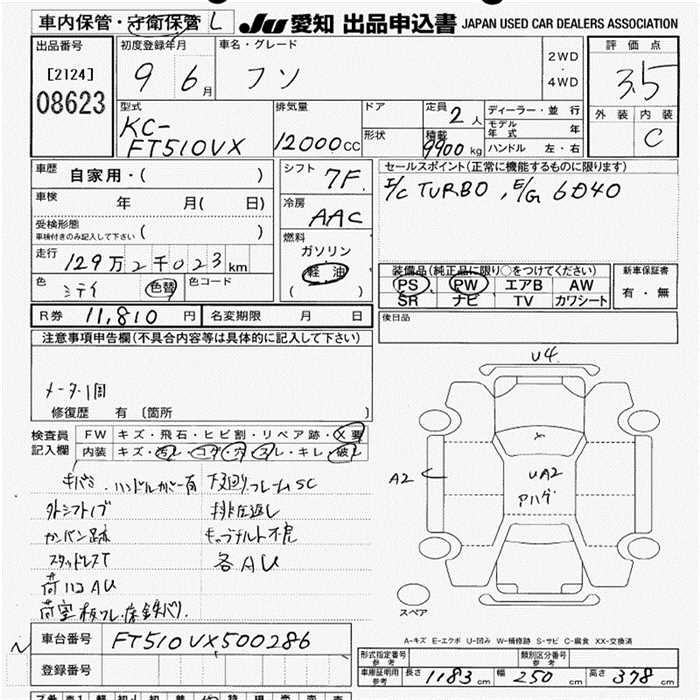 車内保管・守衛保管 L
JU 愛知 出品申込書 JAPAN USED CAR DEALERS ASSOCIATION
出品番号 初度登録年月 車名・グレード 評価点
[2124] 08623
9 6月 フソ
2WD・4WD
3.5
外装 内装
C
型式 排気量 ドア 定員 2人 ディーラー・並行
KC-FT510VX 12000cc
形状 積載 9900kg
モデル年式 年
ハンドル 左・右
車歴 自家用・( )
シフト 7F
セールスポイント(正常に機能するものに限ります)
I/C TURBO, E/G 6D40
車検 年 月( 日)
冷房 AAC
受検形態
車検付きのみ記入して下さい ( )
燃料 ガソリン 軽油 ( )
走行 129万2千023km
色 色替 色コード
装備品(純正品に限り○をつけてください)
PS PW エアB AW
SR ナビ TV カワシート
新車保証書 有・無
R券 11,810円 名変期限 月 日
後日品
注意事項申告欄(不具合内容等は具体的に記入して下さい)
メーター1回
修復歴 有 [箇所 ]
検査員記入欄
FW キズ・飛石・ヒビ割・リペア跡・X要
内装 キズ・汚レ・コゲ・穴・スレ・キレ・破レ
ハンドルカバー有 下回りフレームSC
外シフトノブ 排圧返し
カンバン跡
スタッドレスT 各AU
荷ハコAU
U4
A2
UA2
スペア
A-キズ E-エクボ U-凹み W-補修跡 S-サビ C-腐食 XX-交換済
車台番号 FT510VX500286
登録番号
形式指定番号 参考 類別区分番号 参考
車庫証明用 参考 長さ 1183cm 幅 250cm 高さ 378cm